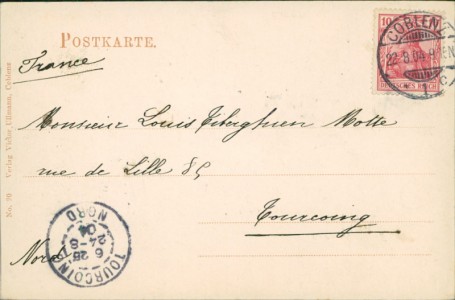 POSTKARTE.
France
10
DEUTSCHES REICH
COBLENZ
22.8.04
Monsieur Louis Tiberghien Motte
rue de Lille 85
Tourcoing
Nord
TOURCOING
6 25
24-8
04
NORD
No. 70 Verlag Victor Ullmann, Coblenz